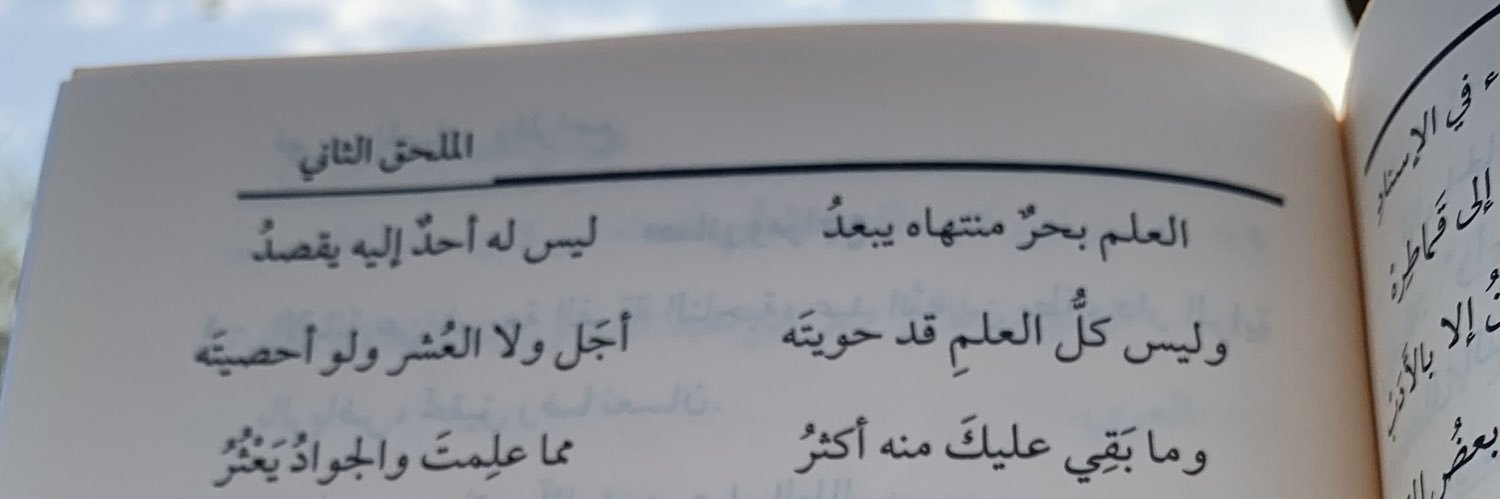 الملحق الثاني
العلم بحرٌ منتهاه يبعدُ ليس له أحدٌ إليه يقصدُ
وليس كلُّ العلمِ قد حويتَه أجَل ولا العُشر ولو أحصيتَه
وما بَقِي عليكَ منه أكثرُ مما علِمتَ والجوادُ يَعْثُرُ
ء في الإسناد
إلى قَماطِرة
إلا بالأَدَب
بعضُ